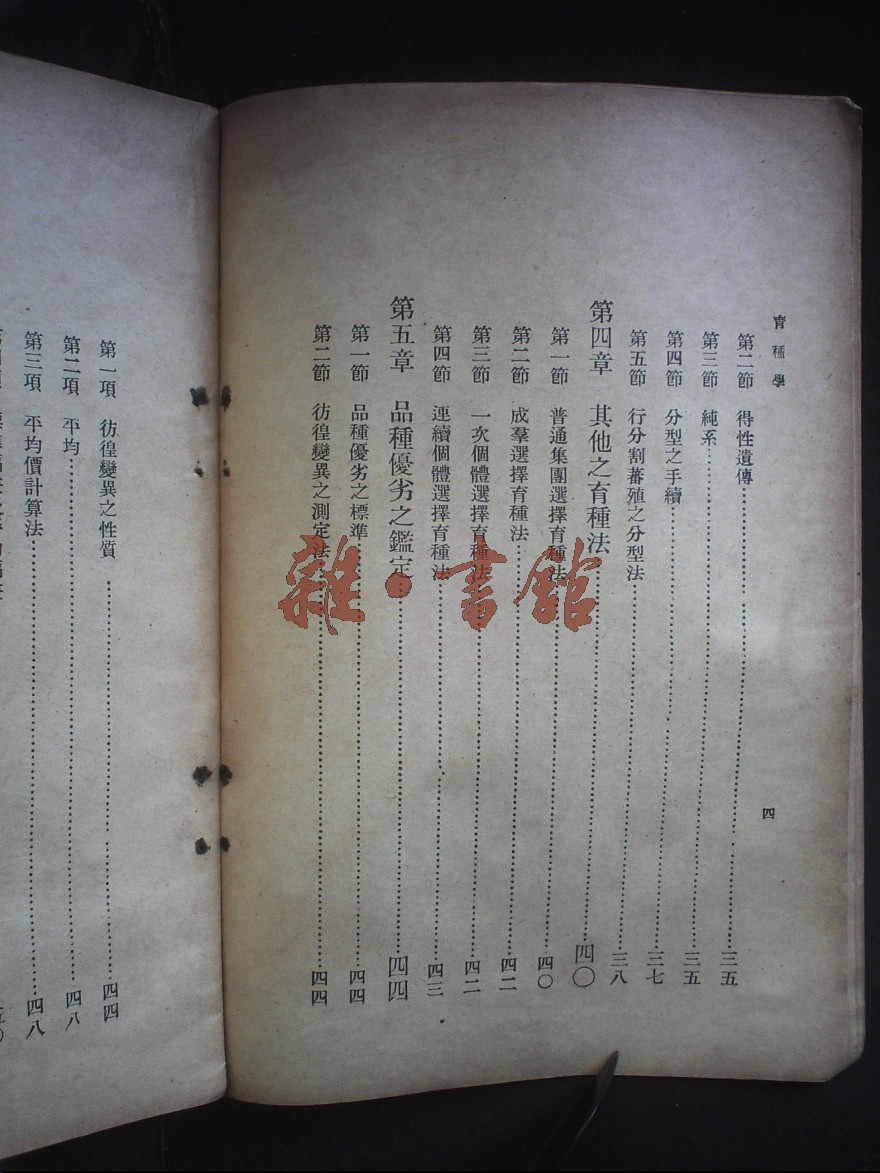 育種學
四
第二節 得性遺傳……三五
第三節 純系……三五
第四節 分型之手續……三七
第五節 行分割蕃殖之分型法……三八
第四章 其他之育種法……四〇
第一節 普通集團選擇育種法……四〇
第二節 成羣選擇育種法……四二
第三節 一次個體選擇育種法……四二
第四節 連續個體選擇育種法……四三
第五章 品種優劣之鑑定……四四
第一節 品種優劣之標準……四四
第二節 彷徨變異之測定法……四四
第一項 彷徨變異之性質……四四
第二項 平均……四八
第三項 平均價計算法……四八
雜·書館